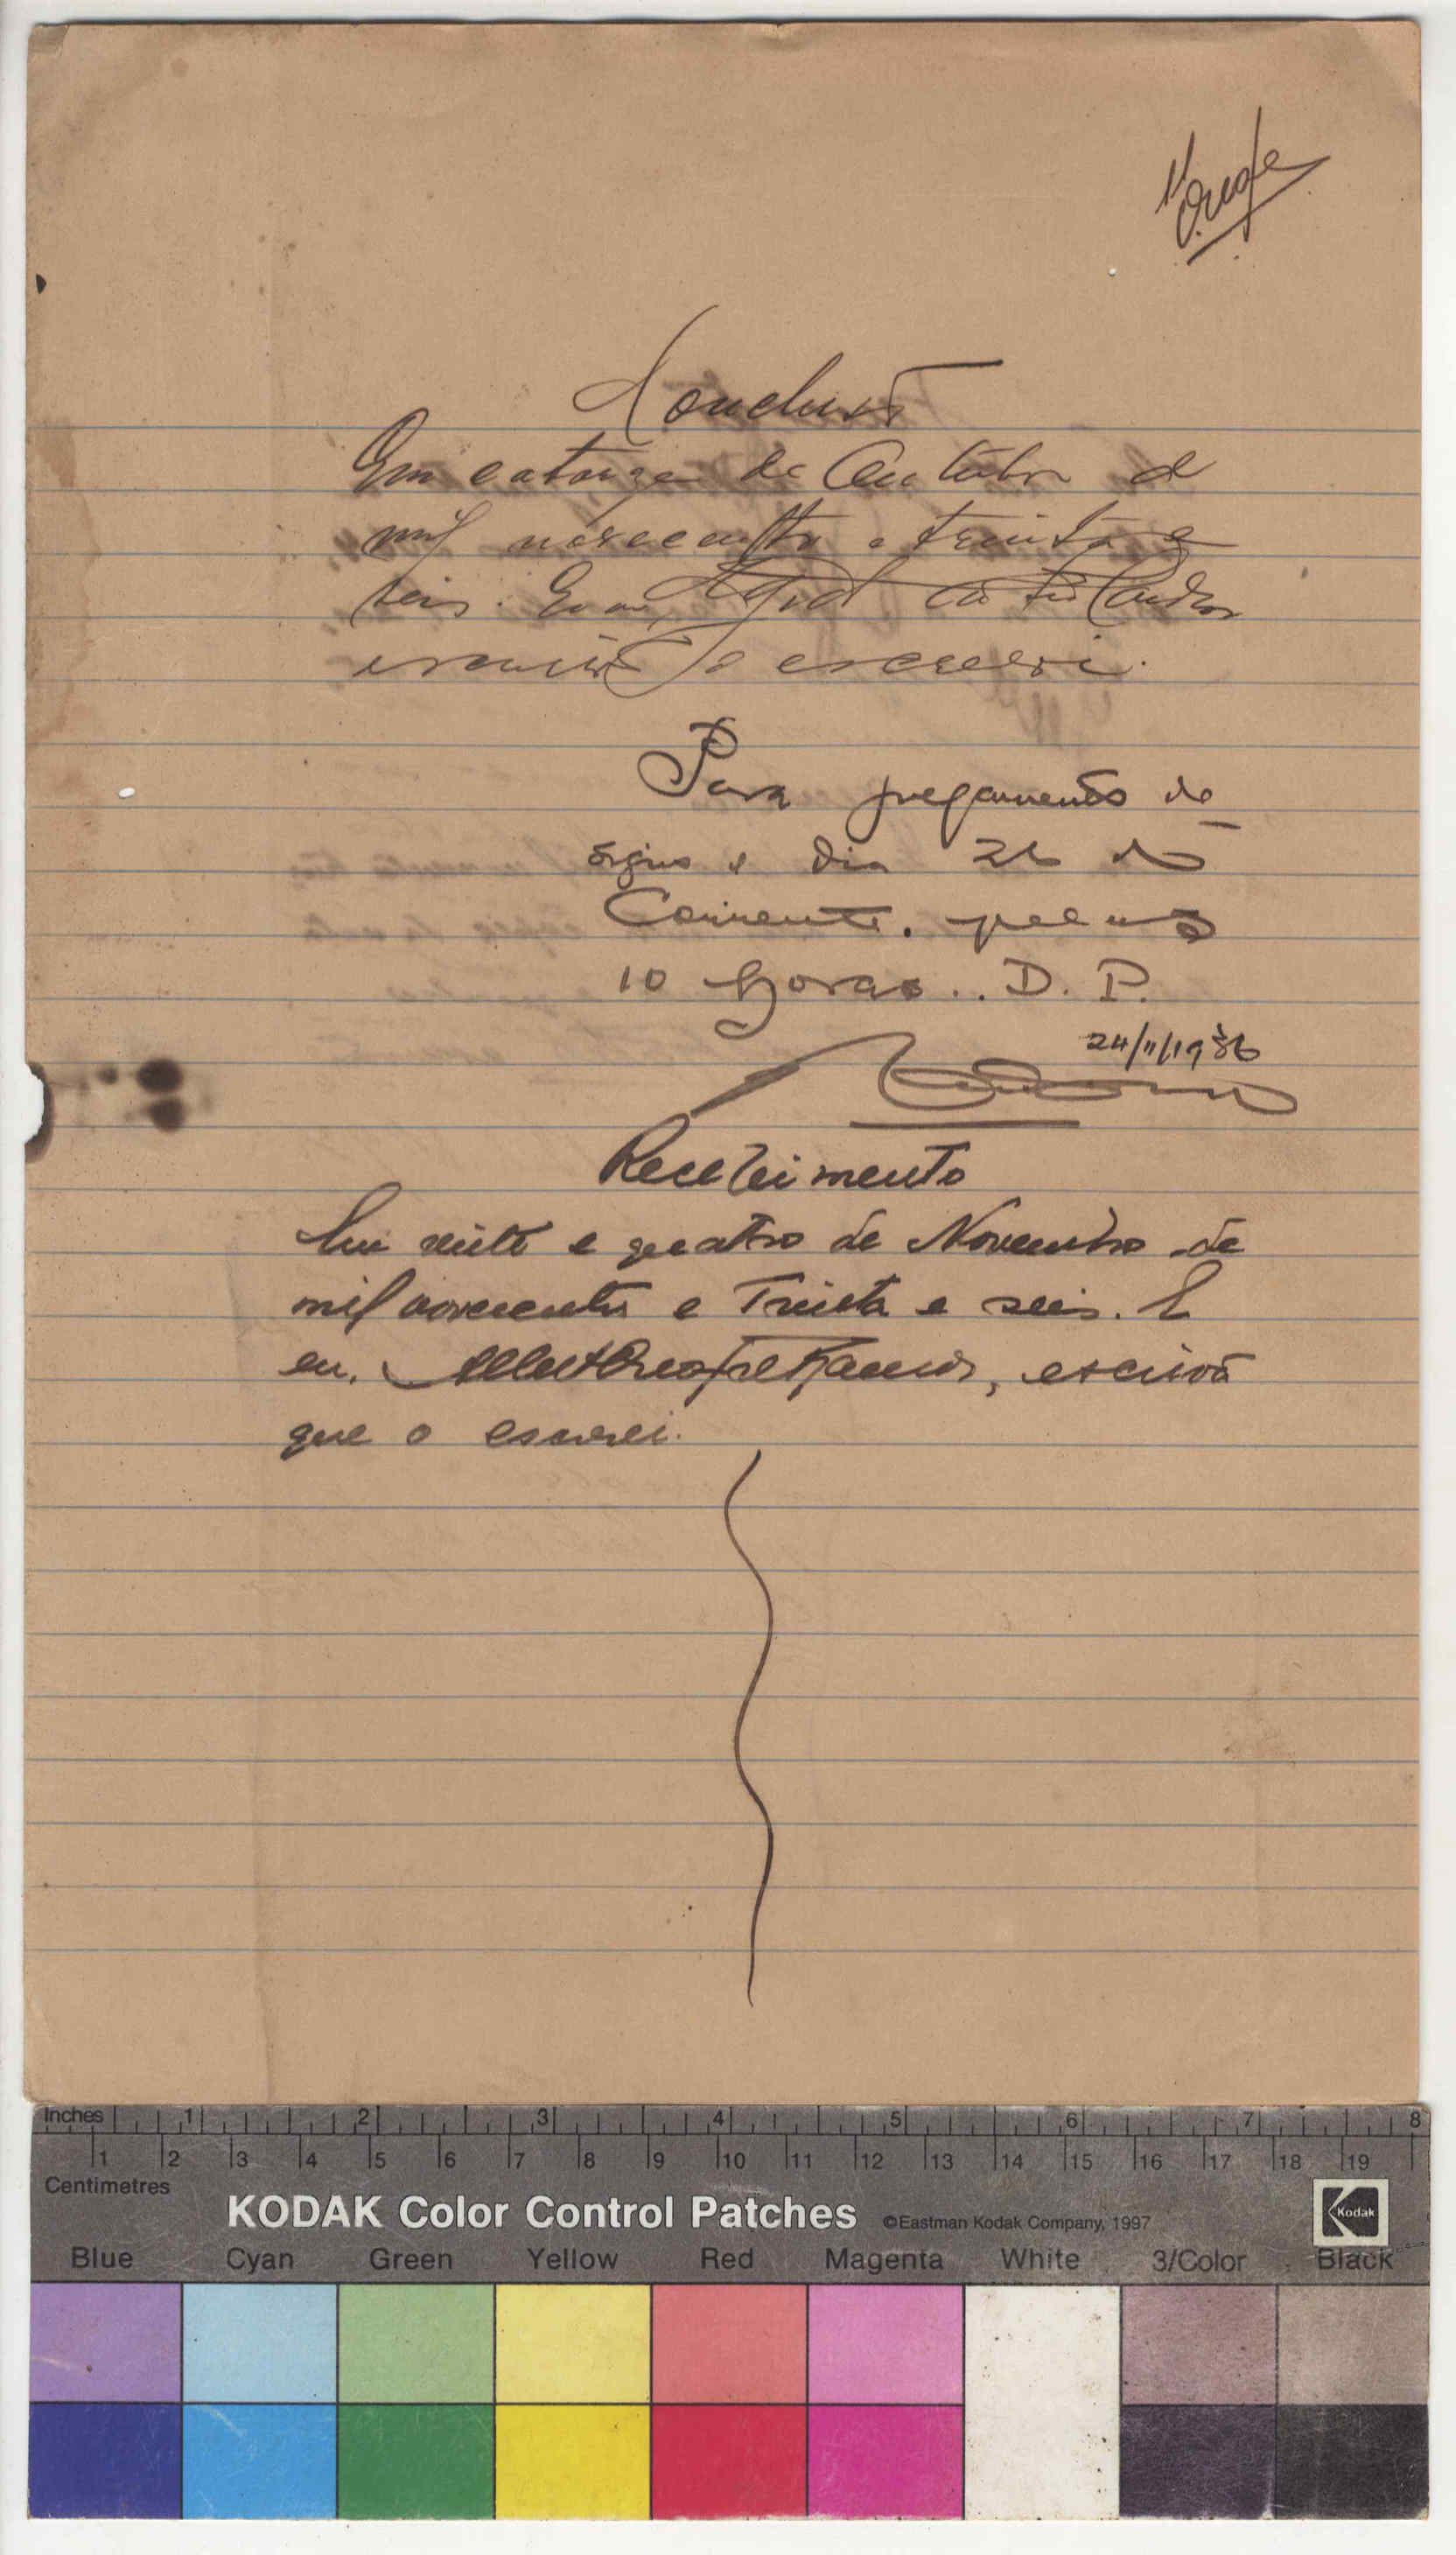 Conclusão
Em catorze de Outubro de
mil novecentos e trinta e
seis. Eu
escrivão o escrevi.
Para julgamento de
dia 26 do
Corrente. pelas
10 horas.. D. P.
24/11/1936
Recebimento
Em vinte e quatro de Novembro de
mil novecentos e Trinta e seis. E
eu, Ramos, escrivão
que o escrevi.
Inches 1 2 3 4 5 6 7 8
1 2 3 4 5 6 7 8 9 10 11 12 13 14 15 16 17 18 19
Centimetres
KODAK Color Control Patches ©Eastman Kodak Company, 1997 Kodak
Blue Cyan Green Yellow Red Magenta White 3/Color Black